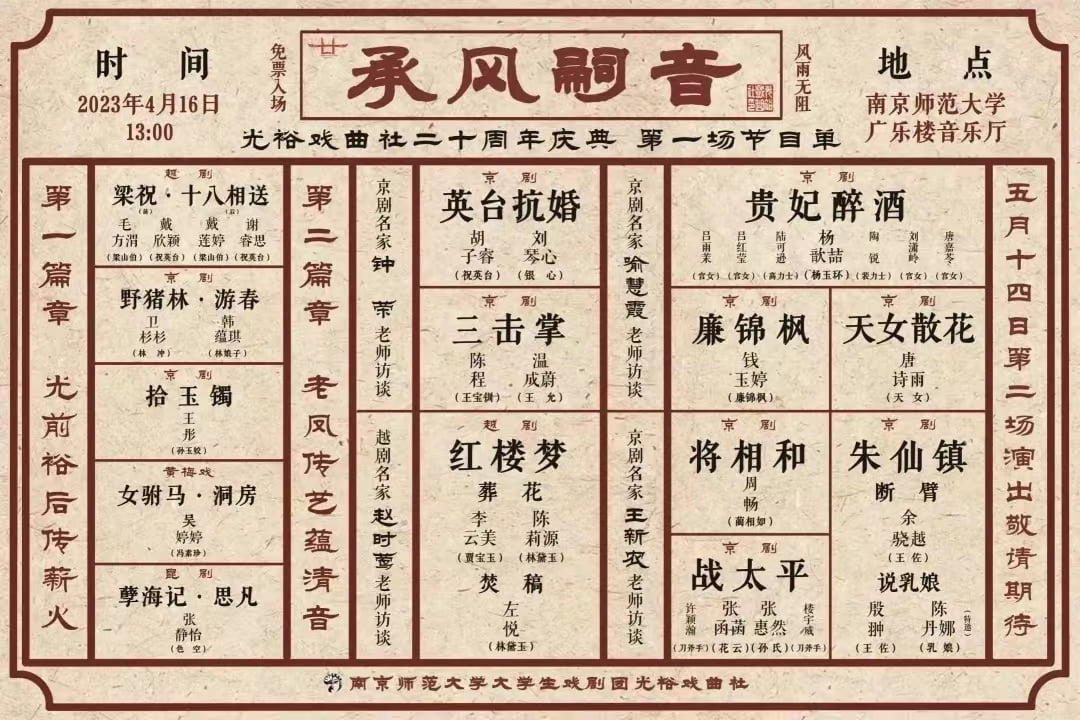 时间
2023年4月16日
13:00
免票入场
承风嗣音
风雨无阻
地点
南京师范大学
广乐楼音乐厅
光裕戏曲社二十周年庆典 第一场节目单
第一篇章 光前裕后传薪火
越剧
梁祝·十八相送
(前) (后)
毛方渭 戴欣颖 戴莲婷 谢睿思
(梁山伯) (祝英台) (梁山伯) (祝英台)
京剧
野猪林·游春
卫杉杉 韩蕴琪
(林冲) (林娘子)
京剧
拾玉镯
王彤
(孙玉姣)
黄梅戏
女驸马·洞房
吴婷婷
(冯素珍)
昆剧
孽海记·思凡
张静怡
(色空)
第二篇章 老凤传艺蕴清音
京剧名家钟荣老师访谈
越剧名家赵时莺老师访谈
京剧
英台抗婚
胡子睿 刘琴心
(祝英台) (银心)
京剧
三击掌
陈程 温成蔚
(王宝钏) (王允)
越剧
红楼梦
葬花
李云美 陈莉源
(贾宝玉) (林黛玉)
焚稿
左悦
(林黛玉)
京剧名家喻慧霞老师访谈
京剧名家王新农老师访谈
京剧
贵妃醉酒
吕雨茉 吕红莹 陆可逊 杨歆喆 陶锐 刘潇岭 唐嘉苓
(宫女) (宫女) (高力士) (杨玉环) (裴力士) (宫女) (宫女)
京剧
廉锦枫
钱玉婷
(廉锦枫)
京剧
天女散花
唐诗雨
(天女)
京剧
将相和
周畅
(蔺相如)
京剧
战太平
许颖瀚 张函菡 张惠然 楼宇威
(刀斧手) (花云) (孙氏) (刀斧手)
京剧
朱仙镇
断臂
余骁越
(王佐)
说乳娘
殷翀 陈丹娜 (特邀)
(王佐) (乳娘)
五月十四日第二场演出敬请期待
南京师范大学大学生戏剧团光裕戏曲社